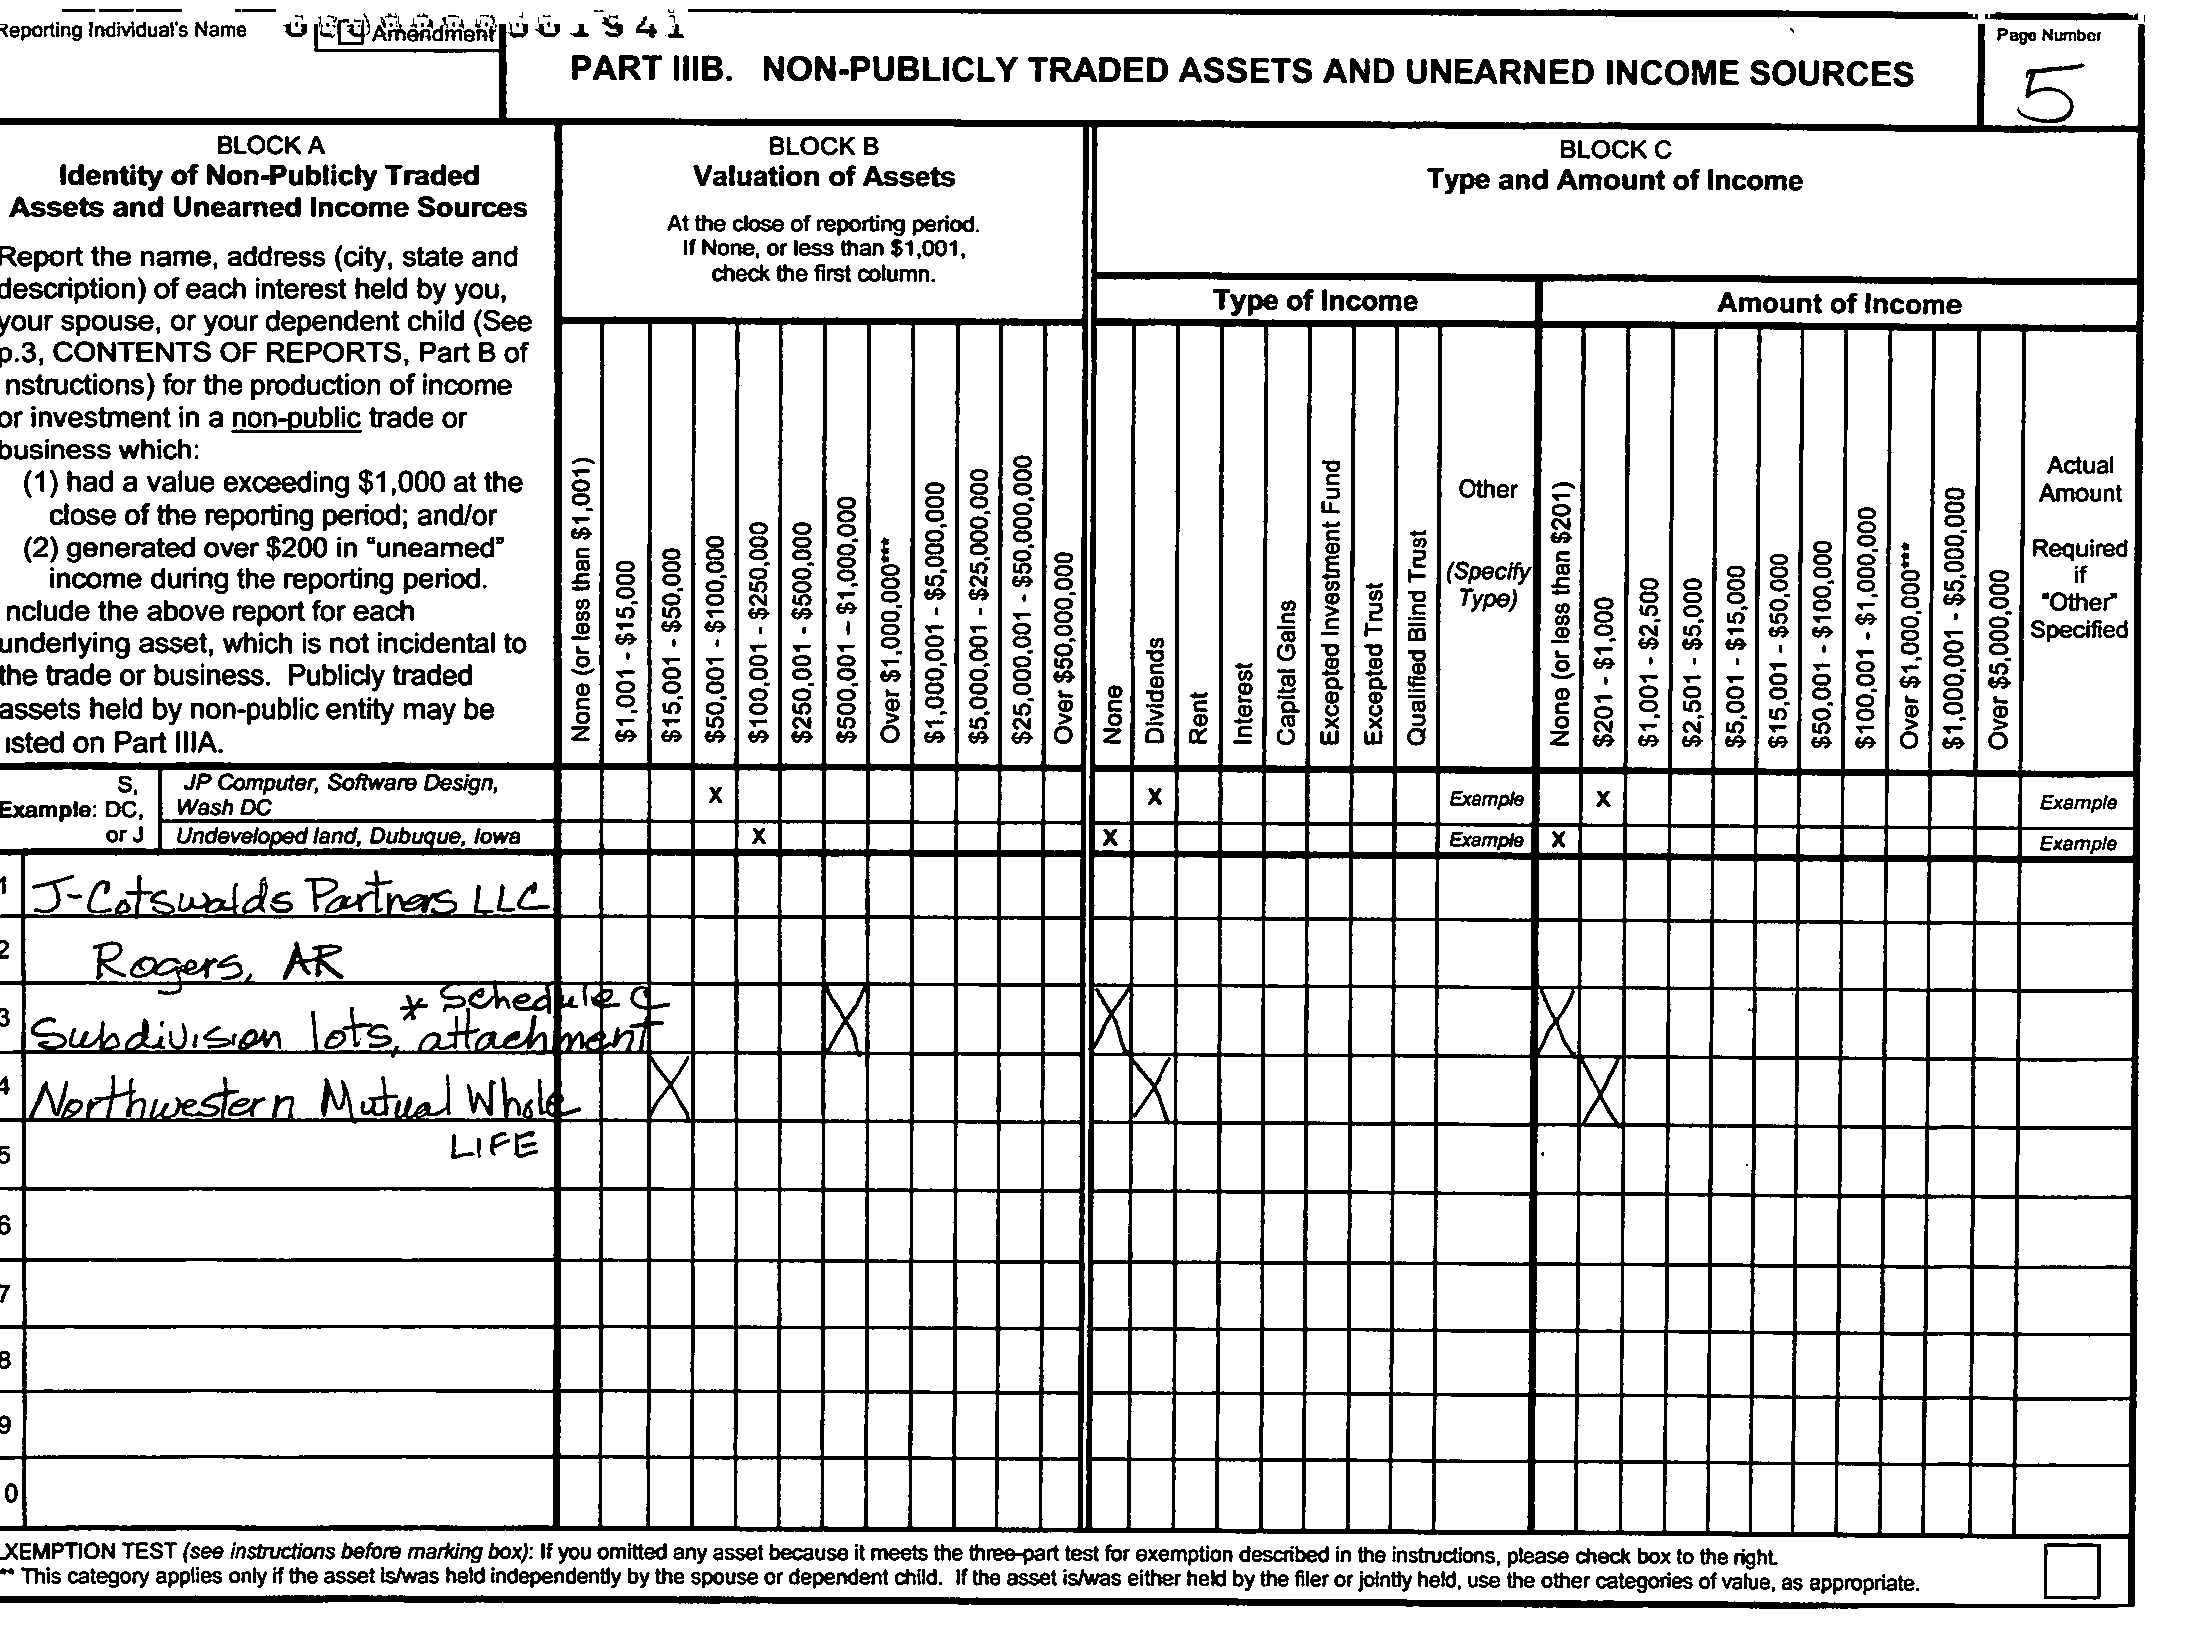 Reporting Individual's Name
Amendment
PART IIIB. NON-PUBLICLY TRADED ASSETS AND UNEARNED INCOME SOURCES
Page Number
5
BLOCK A
Identity of Non-Publicly Traded
Assets and Unearned Income Sources
Report the name, address (city, state and
description) of each interest held by you,
your spouse, or your dependent child (See
p.3, CONTENTS OF REPORTS, Part B of
nstructions) for the production of income
or investment in a non-public trade or
business which:
(1) had a value exceeding $1,000 at the
close of the reporting period; and/or
(2) generated over $200 in "unearned"
income during the reporting period.
nclude the above report for each
underlying asset, which is not incidental to
the trade or business. Publicly traded
assets held by non-public entity may be
isted on Part IIIA.
BLOCK B
Valuation of Assets
At the close of reporting period.
If None, or less than $1,001,
check the first column.
BLOCK C
Type and Amount of Income
Type of Income
Amount of Income
None (or less than $1,001)
$1,001 - $15,000
$15,001 - $50,000
$50,001 - $100,000
$100,001 - $250,000
$250,001 - $500,000
$500,001 - $1,000,000
Over $1,000,000***
$1,000,001 - $5,000,000
$5,000,001 - $25,000,000
$25,000,001 - $50,000,000
Over $50,000,000
None
Dividends
Rent
Interest
Capital Gains
Excepted Investment Fund
Excepted Trust
Qualified Blind Trust
Other
(Specify
Type)
None (or less than $201)
$201 - $1,000
$1,001 - $2,500
$2,501 - $5,000
$5,001 - $15,000
$15,001 - $50,000
$50,001 - $100,000
$100,001 - $1,000,000
Over $1,000,000***
$1,000,001 - $5,000,000
Over $5,000,000
Actual
Amount
Required
if
"Other"
Specified
Example: S, DC, or J
JP Computer, Software Design,
Wash DC
X X Example X Example
Undeveloped land, Dubuque, Iowa X X Example X Example
1 J-Cotswalds Partners LLC
2 Rogers, AR
* Schedule C
3 Subdivision lots, attachment X X X
4 Northwestern Mutual Whole X X X
5 LIFE
6
7
8
9
0
XEMPTION TEST (see instructions before marking box): If you omitted any asset because it meets the three-part test for exemption described in the instructions, please check box to the right.
** This category applies only if the asset is/was held independently by the spouse or dependent child. If the asset is/was either held by the filer or jointly held, use the other categories of value, as appropriate.